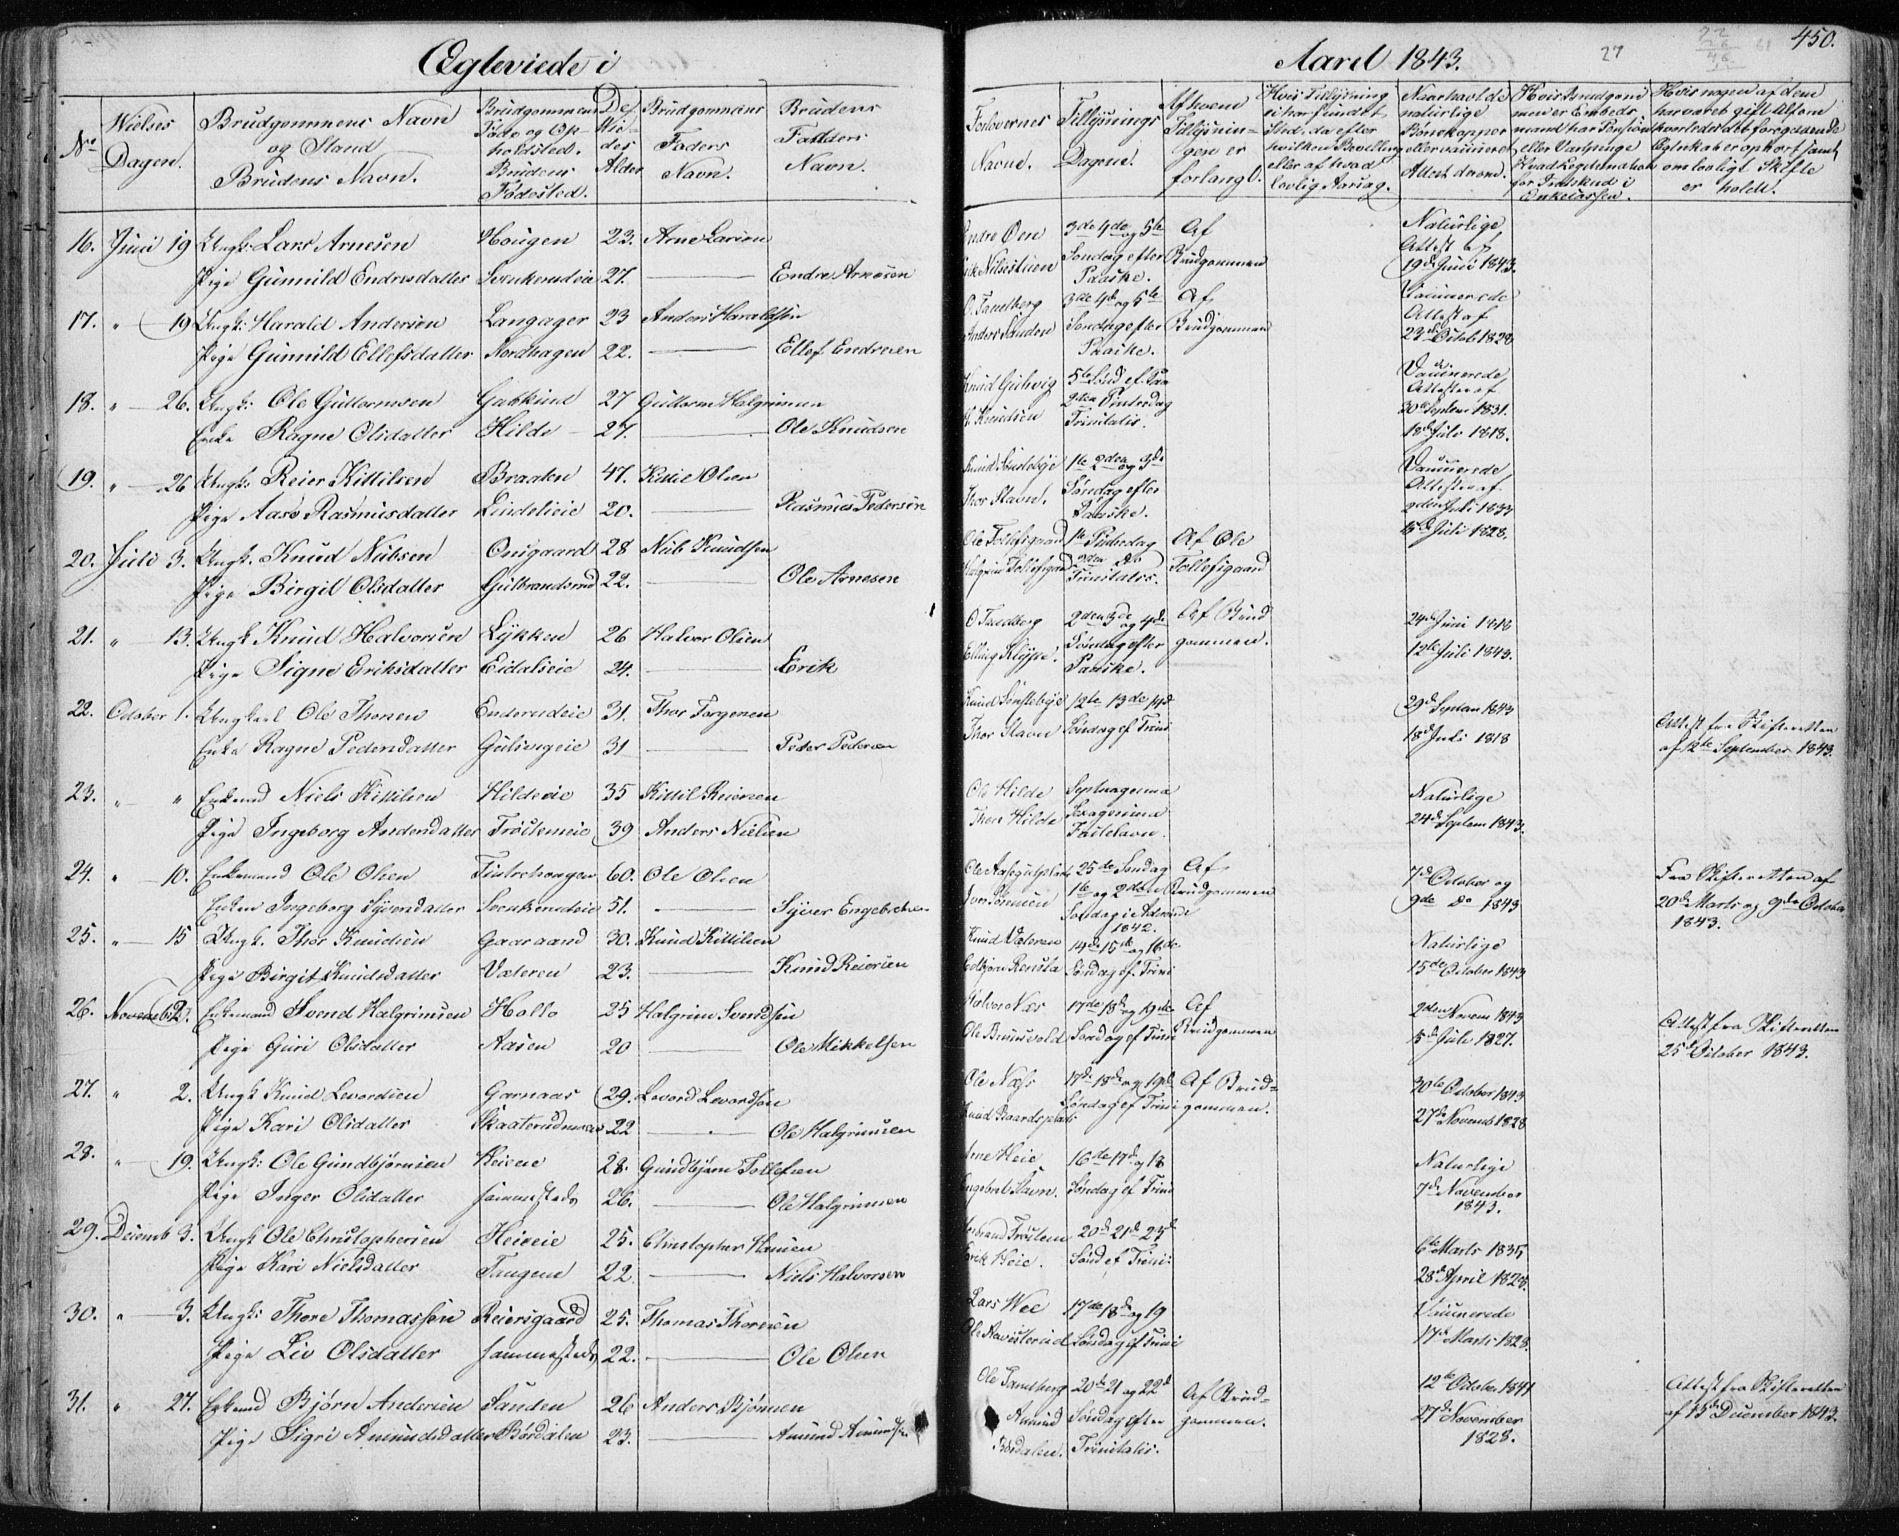 Ægteviede i
No
Vielses Dagen.
Brudgommens Navn og Stand
Brudens Navn.
Brudgommens Føde og Opholdsted.
Brudens Fødested.
Des Viedes Alder
Brudgommens Faders Navn.
Brudens Faders Navn.
16. Juni 19 Ungk: Lars Arnesen Hougen 23. Arne Larsen
Pige Gunnild Endresdatter 27. Endre Arnesen
17. " 19 Ungk: Harald Andersen Langager 23 Anders Haraldsen
Pige Gunnild Ellefsdatter Nordhagen 22. Ellef Endresen
18. " 26. Ungk: Ole Guttormsen 27 Guttorm Halgrimsen
Enke Ragne Olsdatter Hilde 27. Ole Knudsen
19. " 26 Ungk: Reier Kittilsen Braaten 47. Kittil Olsen
Pige Aase Rasmusdatter Lindelieie 20. Rasmus Pedersen
20. Juli 3. Ungk. Knud Nubsen Onsgaard 28 Nub Knudsen
Pige Birgit Olsdatter Gulbrandsrud 22. Ole Arnesen
21. " 13. Ungk Knud Halvorsen Lykken 26 Halvor Olsen
Pige Signe Eriksdatter Eidalieie 24. Erik
22. October 1. Ungkarl Ole Thorsen Enderudeie 31. Thor Torgersen
Enke Ragne Pedersdatter 31 Peder Pedersen
23. " " Enkemd Niels Kittilsen Hildeeie 35 Kittil Reiersen
Pige Ingeborg Andersdatter Trøstemeie 39 Anders Nielsen
24. " 10. Enkemand Ole Olsen 60. Ole Olsen
Enken Ingeborg Syversdatter 51. Syver Engebretsen
25. " 15 Ungk. Thor Knudsen Gaaraand 30. Knud Kittilsen
Pige Birgit Knudsdatter Væteren 23. Knud Reiersen
26. Novemb 2. Enkemand Svend Halgrimsen Holto 25 Halgrim Svendsen
Pige Guri Olsdatter Aasen 20 Ole Mikkelsen
27. " 2. Ungk Knud Levordsen Garnaas 29. Levord Levordsen
Pige Kari Olsdatter 22 Ole Halgrimsen
28. " 19. Ungk: Ole Gundbjørnsen Heieie 28. Gundbjørn Tollefsen
Pige Inger Olsdatter sammesteds 26. Ole Halgrimsen
29. Decemb 3. Ungk Ole Christophersen Heieeie 25. Christopher Hansen
Pige Kari Nielsdatter Tangene 22. Niels Halvorsen
30. " 3. Ungk: Thore Thomassen Reiersgaard 25. Thomas Thoresen
Pige Liv Olsdatter sammesteds 22. Ole Olsen
31. " 27. Enkemd Bjørn Andersen Sanden 26 Anders Bjørnsen
Pige Sigri Amundsdatter Børdalen 23. Amund Amundsen
Aaret 1843.
27
450.
Forlovernes Navne.
Tillysnings Dagene.
Af hvem Tillysningen er forlangt.
Hvis Tillysning ei har fundet Sted, da efter hvilken Bevilling eller af hvad lovlig Aarsag.
Naar havt de naturlige Børnekopper eller vaccinerede Attest derom.
Hvis Brudgommen er Embedsmand har Pension eller Vartpenge Hvad Legitimation for Indskud i Enkekassen.
Hvis nogen af dem har været gift Attest hvorledes det foregaaende Ægteskab er ophørt samt om lovligt Skifte er holdt.
Endre Øen 3de 4de og 5te Søndag efter Paaske. Af Brudgommen Naturlige Attest af 19de Juni 1843.
O. Sandberg Anders Sanden 3de 4de og 5te Søndag efter Paaske. Af Brudgommen Vaccinerede Attest af 23de Octob 1828
Knud Gulsvig K. Knudsen 2den Pintsedag Trinitatis. Vaccinerede Attester af 30te Septem 1831. 18de Juli 1818.
Knud Sønstebye Thor Stavn. 1te 2den og 3de Søndag efter Paaske. Vaccinerede Attester af 2den Juli 1833 15de Juli 1828.
Ole Tollefsgaard Halgrim Tollefsgaard 1te Pintsedag 2den Do Trinitatis. Af Ole Tollefsgaard
O Sandberg Elling Kleppe. 2den 3de og 4de Søndag efter Paaske. Af Brudgommen. 24de Juni 1818 12te Juli 1843.
Knud Sønstebye Thor Stavn 12te 13de 14de Søndag ef Trini 29de Septem 1843 18de Juli 1818 Attest fra Skifteretten af 12te September 1843.
Ole Hilde Thor Hilde Septuagesima Sexagesima Fastelavn. Naturlige 24de Septem 1843.
25de Søndag 1te og 2den Søndag i Advent 1842. Af Brudgommen 7de October og 9de Do 1843 Fra Skifteretten af 20de Marts og 9de October 1843.
Knud Væteren 14de 15de og 16de Søndag ef. Trini Naturlige 15de October 1843
Halvor Næs Ole Brunsvold 17de 18de og 19de Søndag ef Trini Af Brudgommen 2den Novem 1843 15de Juli 1827. Attest fra Skifteretten 25de October 1843.
Ole Næs Knud Baardsplads 17de 18de og 19de Søndag ef Trini Af Brudgommen. 30te October 1843 27de Novemb 1828
Arne Heie Engebret Stavn. 16de 17de og 18 Søndag ef Trini Naturlige 7de November 1843.
Erik Heie. 20de 21de Sønd ef Trini: 6te Marts 1835 28de April 1828.
Lars Wee 17de 18de og 19 Søndag ef Trini Vaccinerede 17de Marts 1828.
Ole Sandberg Amund Børdalen. 20de 21 og 22de Søndag efter Trinitatis. Af Brudgommen. 12te October 1841 27de November 1828. Attest fra Skifteretten af 15de December 1843.